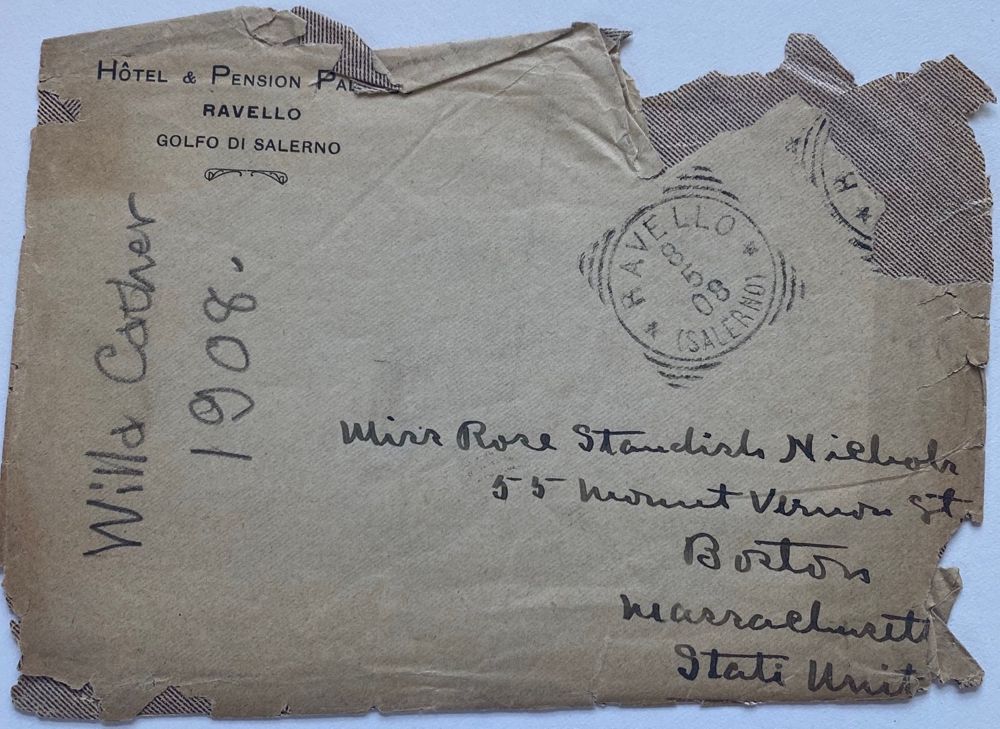 HÔTEL & PENSION PAL
RAVELLO
GOLFO DI SALERNO
Willa Cather
1908.
RAVELLO
8 5 08
(SALERNO)
R
Miss Rose Standish Nichols
55 Mount Vernon St.
Boston
Massachusett
Stati Unit